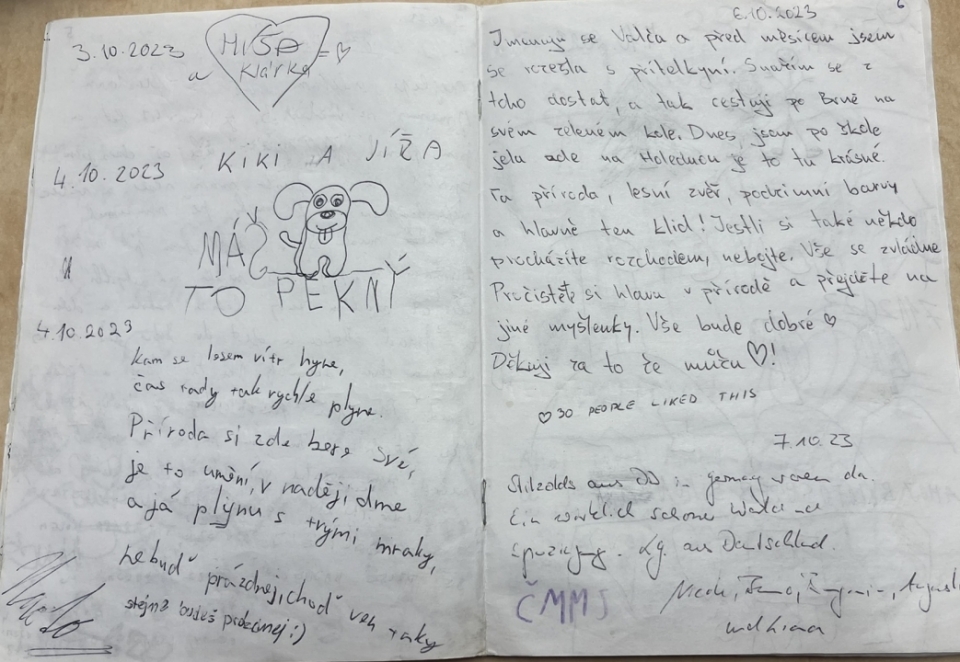 3.10.2023
a
MÍŠA
Klárka
= ♡
4.10.2023
KIKI A JÍŘA
MÁŠ
TO PĚKNÝ
4.10.2023
kam se lesem vítr hyne,
čas tady tak rychle plyne.
Příroda si zde bere své,
je to umění, v naději dme
a já plynu s tvými mraky,
nebuď prázdnej, choď ven taky
stejně budeš :)
6.10.2023
6
Jmenuji se Valča a před měsícem jsem
se rozešla s přítelkyní. Snažím se z
toho dostat, a tak cestuji po Brně na
svém zeleném kole. Dnes jsem po škole
jela sde na Holednou je to tu krásné.
Ta příroda, lesní zvěř, podzimní barvy
a hlavně ten klid! Jestli si také někdo
procházíte rozchodem, nebojte. Vše se zvládne
Pročistěte si hlavu v přírodě a přejděte na
jiné myšlenky. Vše bude dobré ♡
Děkuji za to že můžu ♡!
♡ 30 PEOPLE LIKED THIS
7.10.23
aus DD in germany waren da.
Ein wirklich schöner Wald
. Lg. aus Deutschland.
ČMMJ